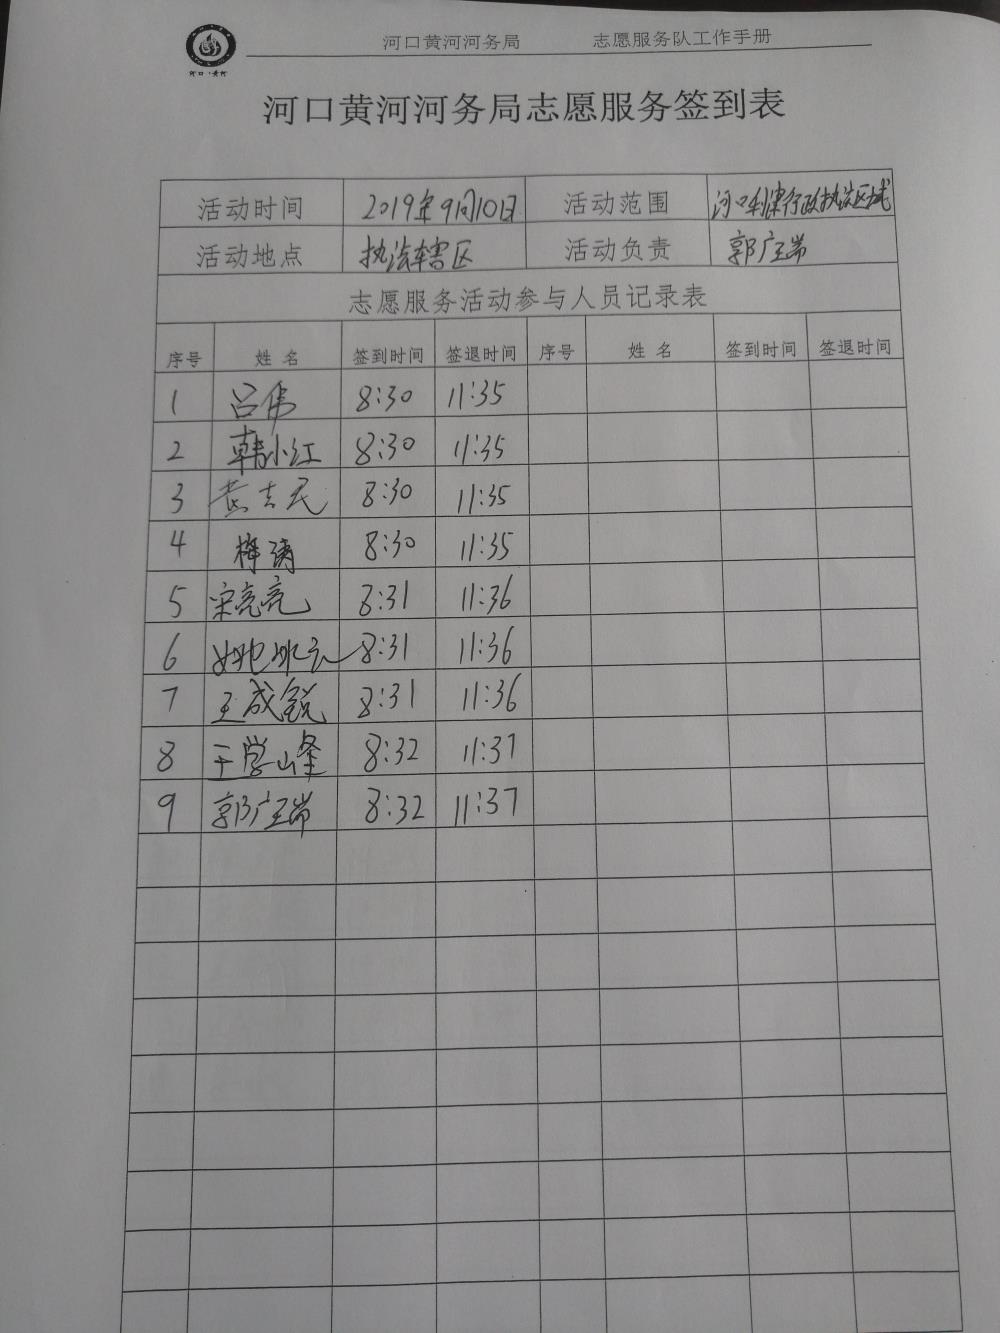 河口·黄河
河口黄河河务局 志愿服务队工作手册
河口黄河河务局志愿服务签到表
活动时间 2019年9月10日 活动范围 河口利津行政执法区域
活动地点 执法辖区 活动负责 郭广瑞
志愿服务活动参与人员记录表
序号 姓名 签到时间 签退时间 序号 姓名 签到时间 签退时间
1 吕伟 8:30 11:35
2 韩小红 8:30 11:35
3 8:30 11:35
4 梅涛 8:30 11:35
5 宋亮亮 8:31 11:36
6 8:31 11:36
7 王成锐 8:31 11:36
8 王学峰 8:32 11:37
9 郭广瑞 8:32 11:37